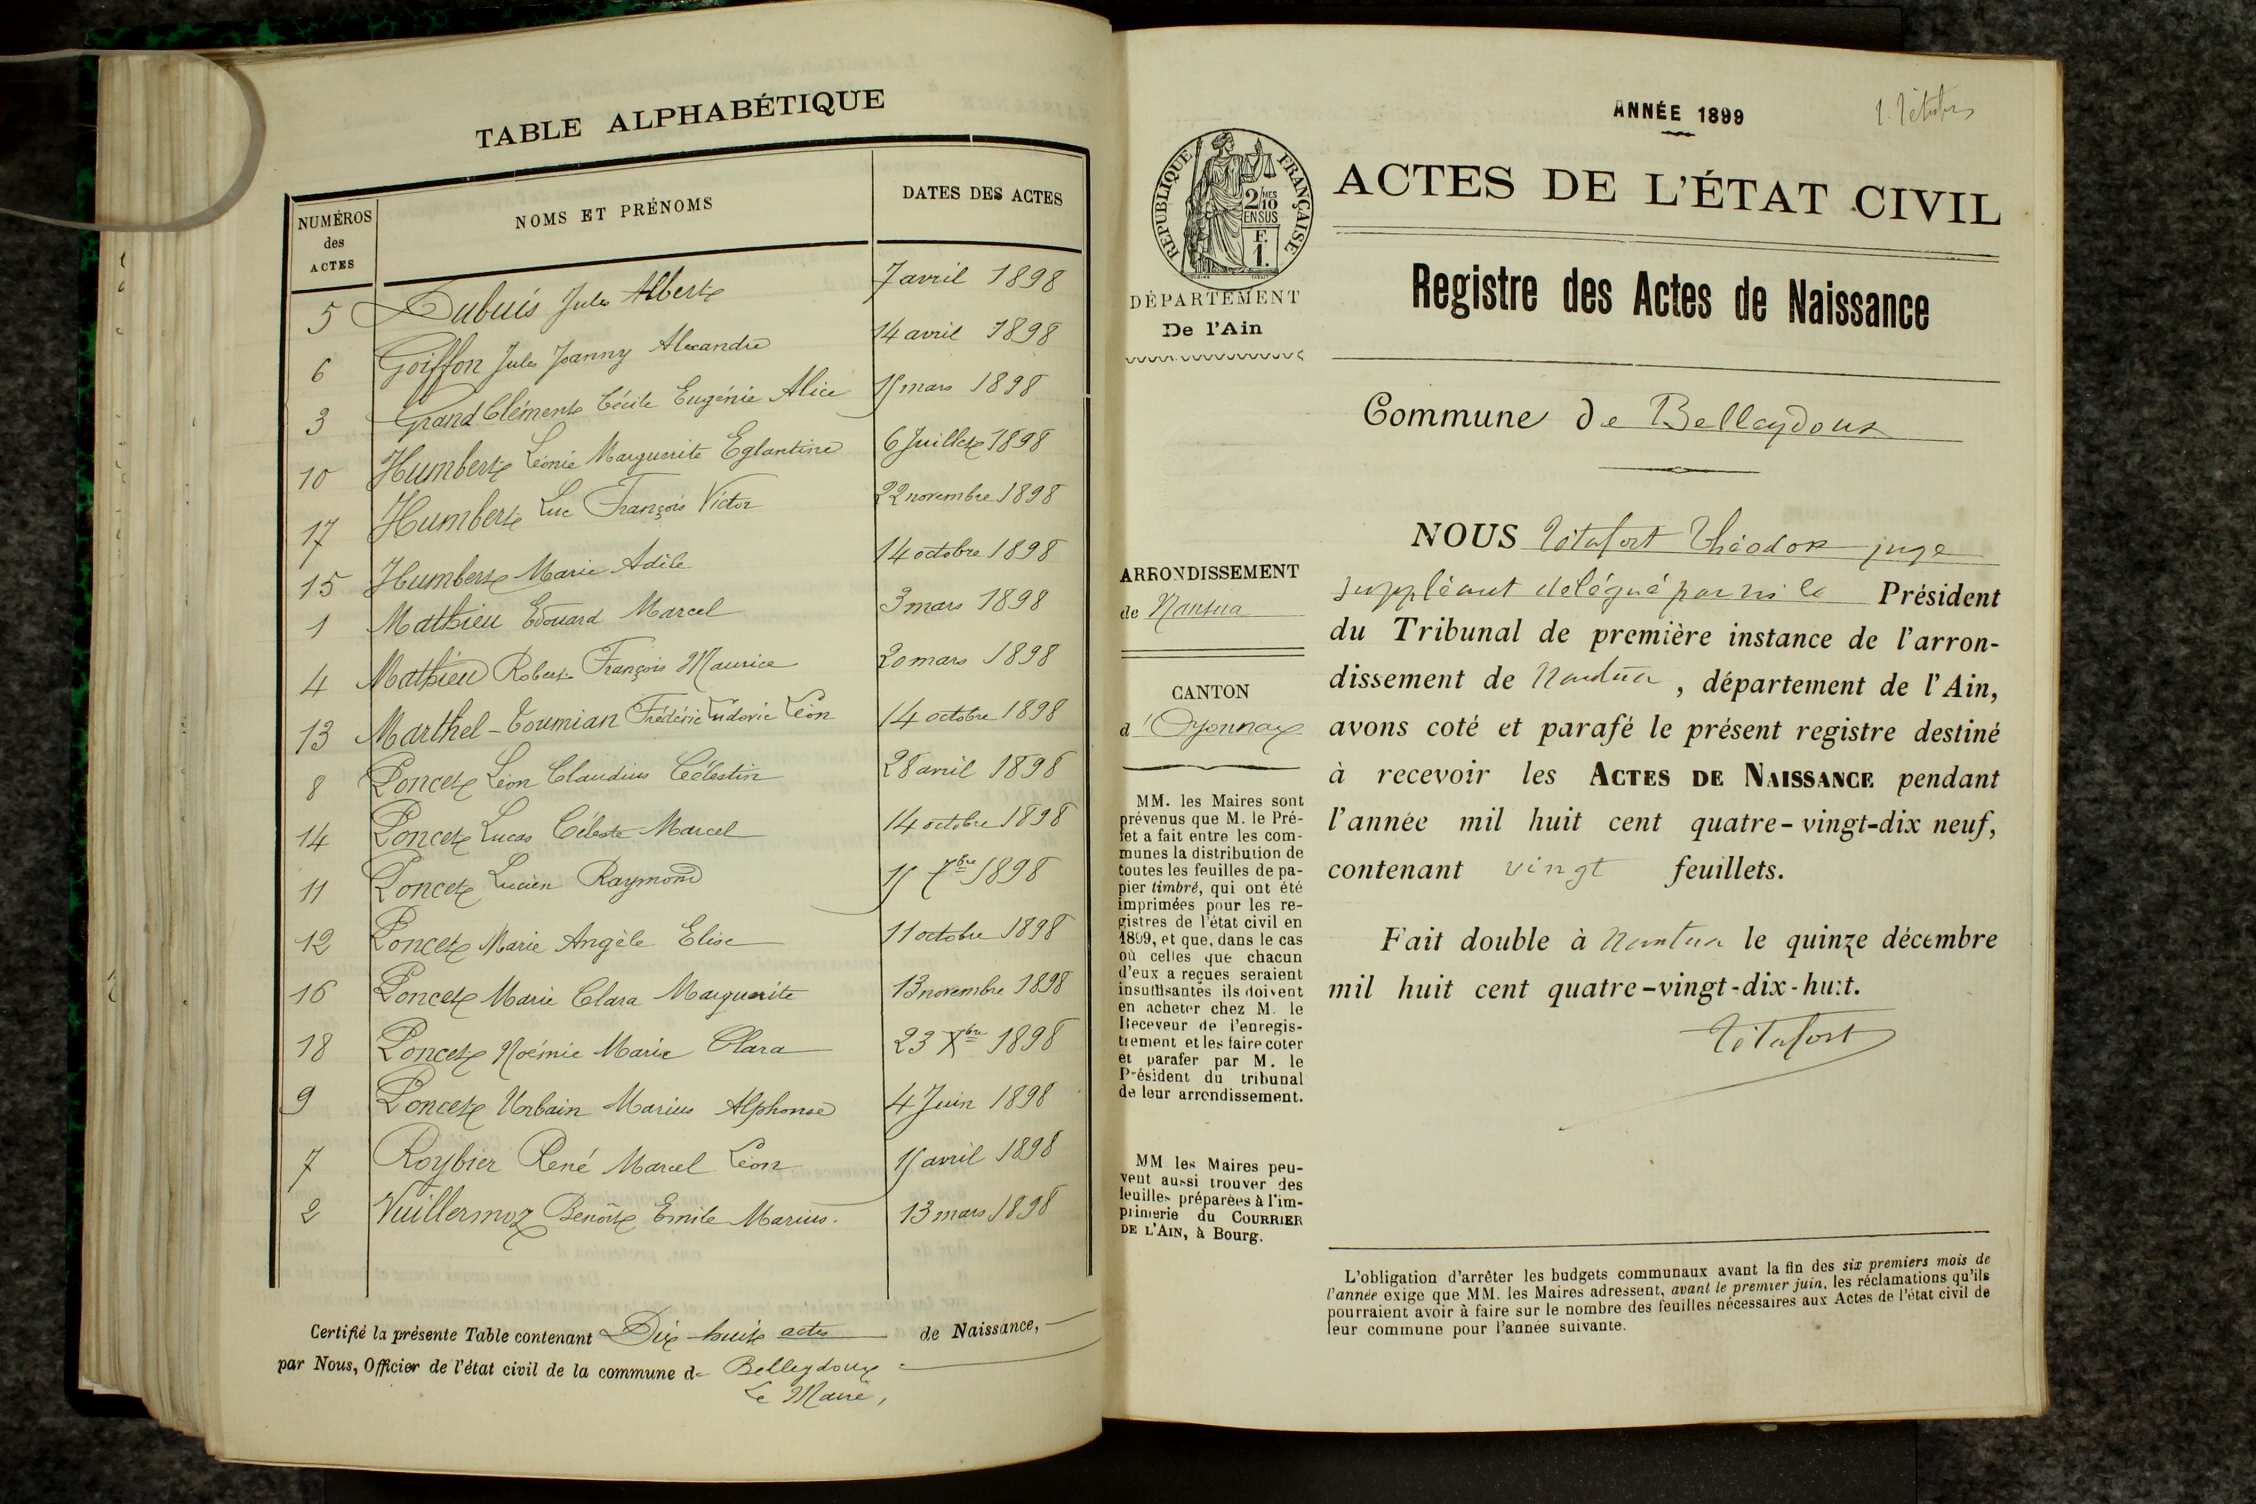 TABLE ALPHABÉTIQUE
NUMÉROS des ACTES NOMS ET PRÉNOMS DATES DES ACTES
5 Dubuis Jules Albert 7 avril 1898
6 Goiffon Jules Joanny Alexandre 14 avril 1898
3 Grand Clément Cécile Eugénie Alice 15 mars 1898
10 Humbert Léonie Marguerite Eglantine 6 Juillet 1898
17 Humbert Luc François Victor 22 novembre 1898
15 Humbert Marie Adèle 14 octobre 1898
1 Mathieu Edouard Marcel 3 mars 1898
4 Mathieu Robert François Maurice 20 mars 1898
13 Marthel-Toumian Frédéric Ludovic Léon 14 octobre 1898
8 Poncet Léon Claudius Célestin 28 avril 1898
14 Poncet Lucas Céleste Marcel 14 octobre 1898
11 Poncet Lucien Raymond 15 7bre 1898
12 Poncet Marie Angèle Elise 11 octobre 1898
16 Poncet Marie Clara Marguerite 13 novembre 1898
18 Poncet Noémie Marie Clara 23 Xbre 1898
9 Poncet Urbain Marius Alphonse 4 Juin 1898
7 Roybier René Marcel Léon 15 avril 1898
2 Vuillermoz Benoît Emile Marius. 13 mars 1898
Certifié la présente Table contenant Dix-huit actes de Naissance,
par Nous, Officier de l'état civil de la commune de Belleydoux
Le Maire,
ANNÉE 1899
RÉPUBLIQUE FRANÇAISE
2/10 MES
EN SUS
F.
1.
ACTES DE L'ÉTAT CIVIL
DÉPARTEMENT
De l'Ain
Registre des Actes de Naissance
Commune de Belleydoux
ARRONDISSEMENT
de Nantua
CANTON
d'Oyonnax
MM. les Maires sont
prévenus que M. le Pré-
fet a fait entre les com-
munes la distribution de
toutes les feuilles de pa-
pier timbré, qui ont été
imprimées pour les re-
gistres de l'état civil en
1899, et que, dans le cas
où celles que chacun
d'eux a reçues seraient
insuffisantes ils doivent
en acheter chez M. le
Receveur de l'enregis-
trement et les faire coter
et parafer par M. le
Président du tribunal
de leur arrondissement.
MM les Maires peu-
vent aussi trouver des
feuilles préparées à l'im-
primerie du COURRIER
DE L'AIN, à Bourg.
NOUS Tétafort Théodore juge
suppléant délégué par Mr le Président
du Tribunal de première instance de l'arron-
dissement de Nantua, département de l'Ain,
avons coté et parafé le présent registre destiné
à recevoir les ACTES DE NAISSANCE pendant
l'année mil huit cent quatre-vingt-dix neuf,
contenant vingt feuillets.
Fait double à Nantua le quinze décembre
mil huit cent quatre-vingt-dix-huit.
Tétafort
L'obligation d'arrêter les budgets communaux avant la fin des six premiers mois de
l'année exige que MM. les Maires adressent, avant le premier juin, les réclamations qu'ils
pourraient avoir à faire sur le nombre des feuilles nécessaires aux Actes de l'état civil de
leur commune pour l'année suivante.